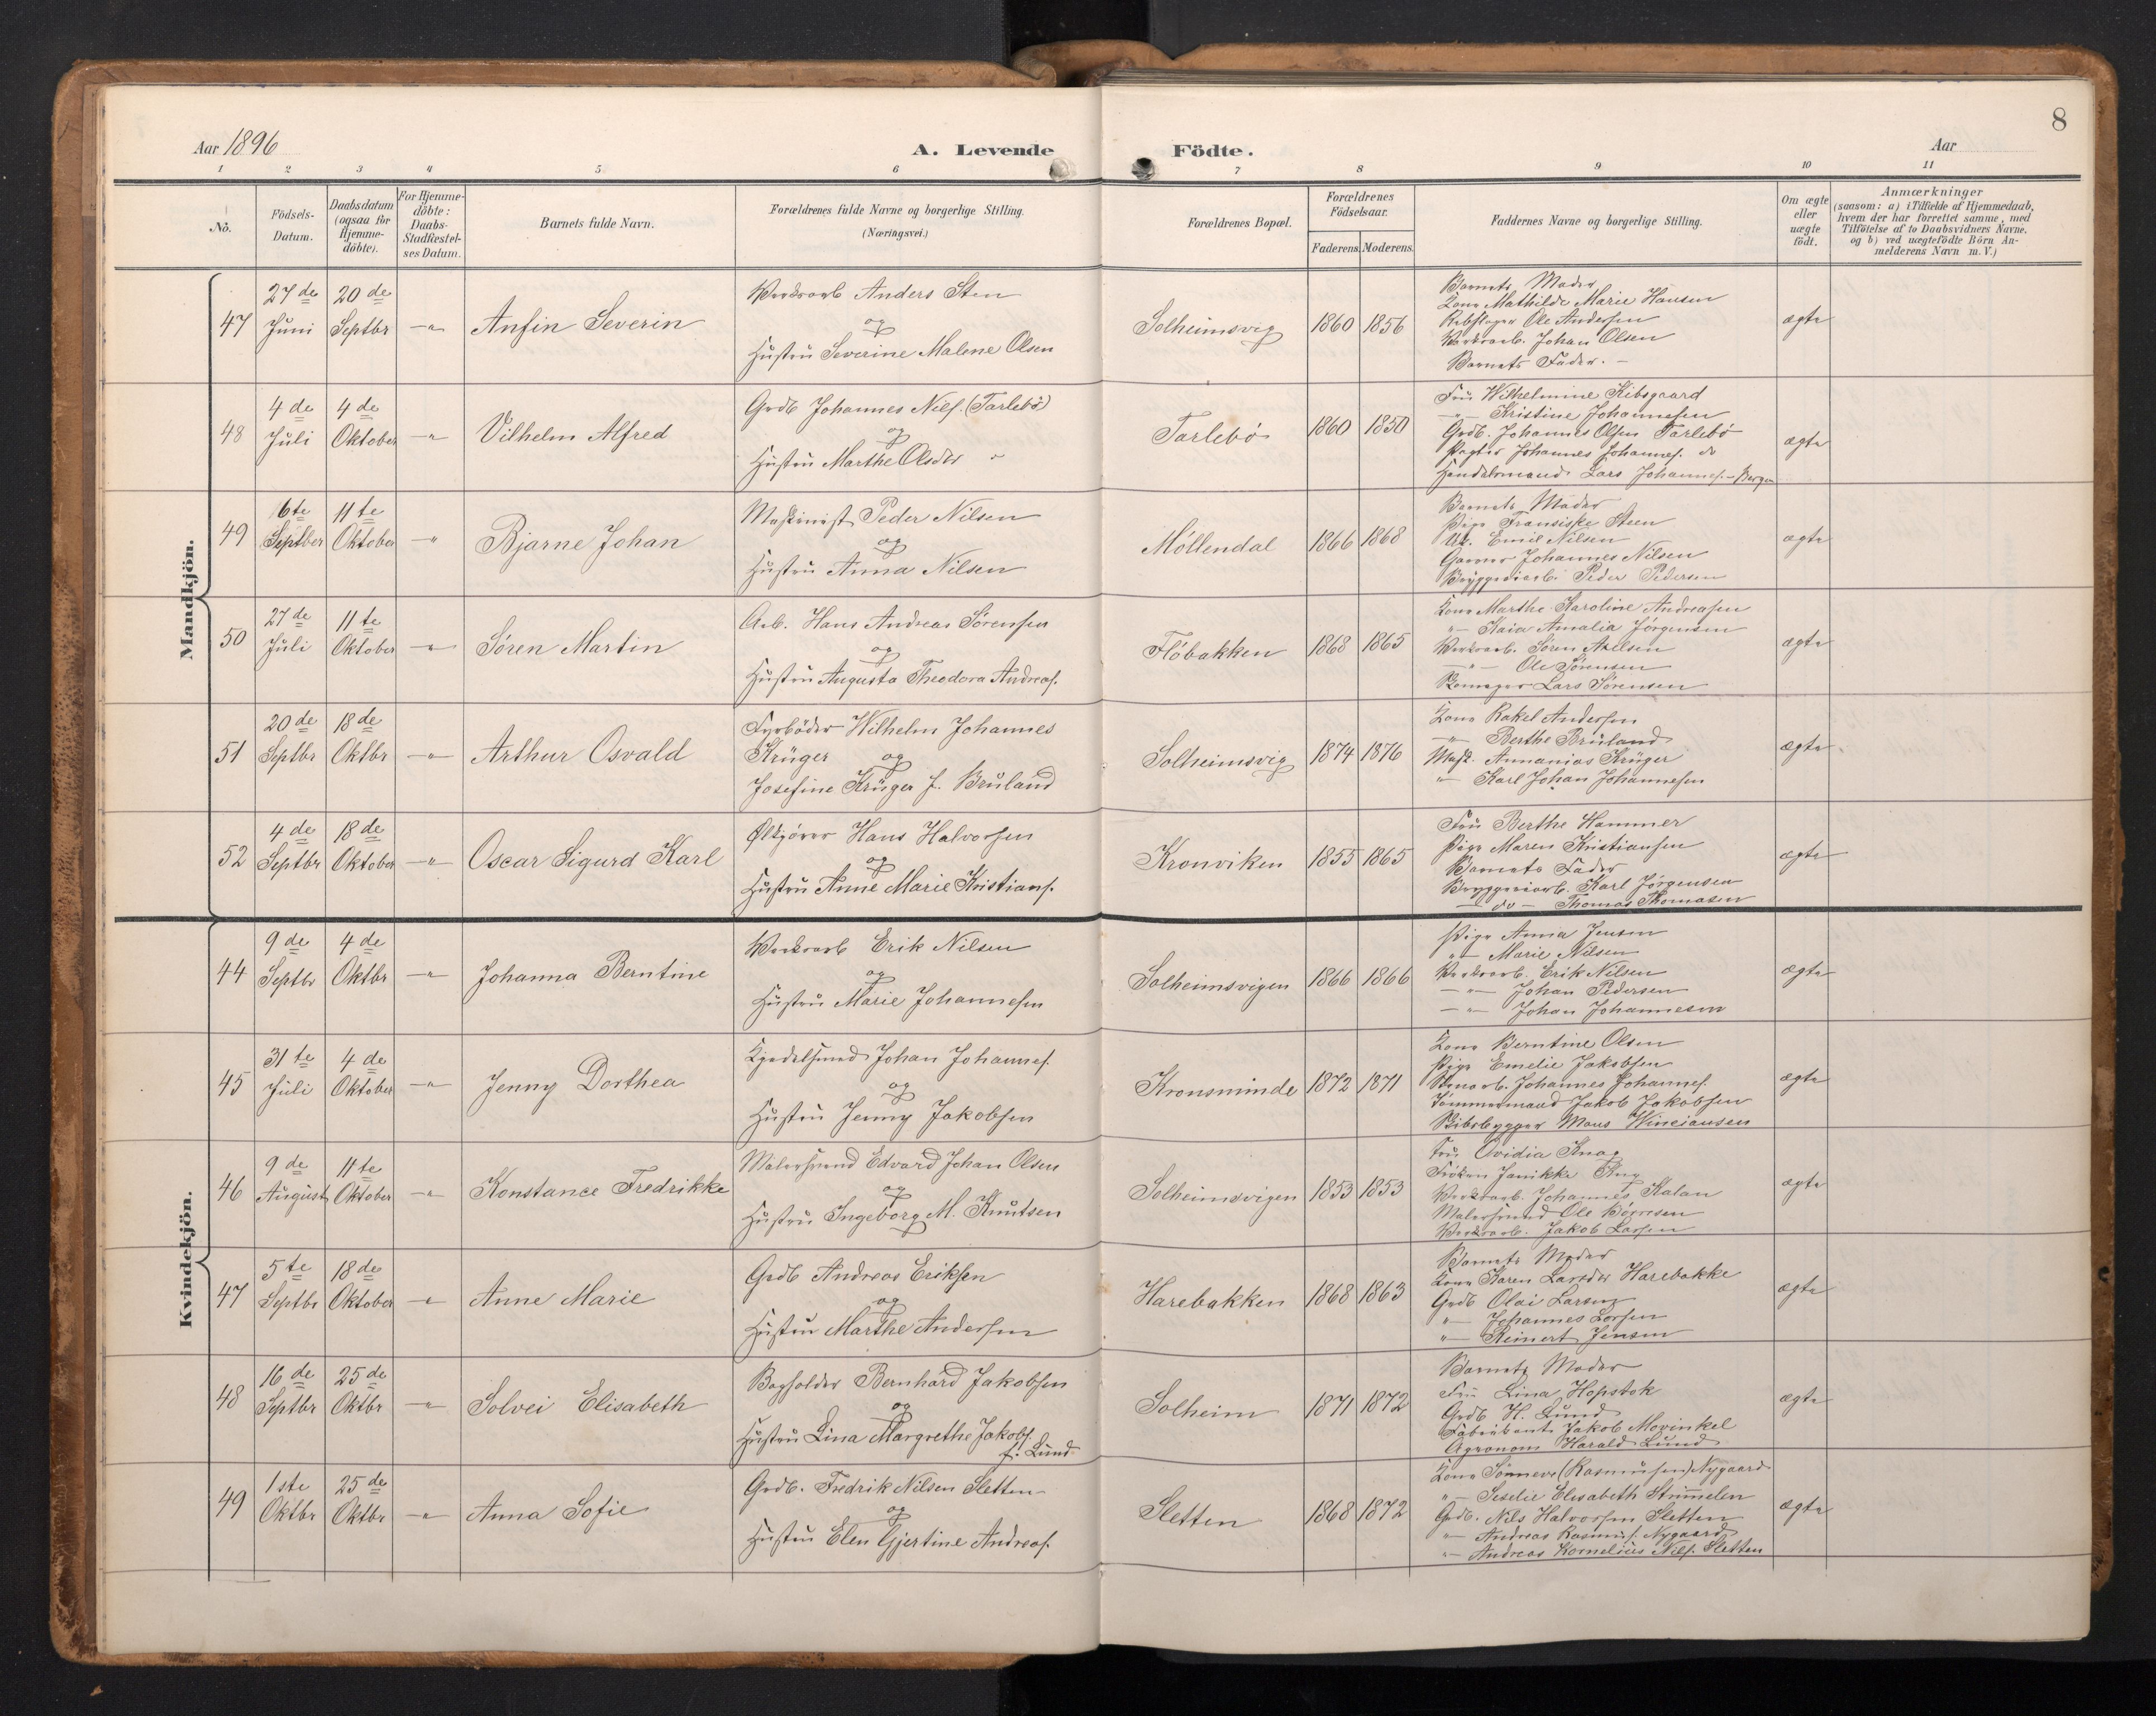 8
Aar 1896
A. Levende Födte.
Aar
1 2 3 4 5 6 7 8 9 10 11
No.
Födsels-
Datum.
Daabsdatum
(ogsaa for
Hjemme-
döbte).
For Hjemme-
döbte:
Daabs-
Stadfæstel-
ses Datum.
Barnets fulde Navn.
Forældrenes fulde Navne og borgerlige Stilling.
(Næringsvei.)
Forældrenes Bopæl.
Forældrenes
Födselsaar.
Faderens. Moderens.
Faddernes Navne og borgerlige Stilling.
Om ægte
eller
uægte
födt.
Anmærkninger
(saasom: a) i Tilfælde af Hjemmedaab,
hvem der har forrettet samme, med
Tilföielse af to Daabsvidners Navne,
og b) ved uægtefödte Börn An-
melderens Navn m. V.)
Mandkjön.
47
27de
Juni
20de
Septbr
—"—
Anfin Severin
Verksarb Anders Sten
og
Hustru Severine Malene Olsen
Solheimsvig
1860 1856
Barnets Moder
Kone Mathilde Marie Hansen
Rebslager Ole Andersen
Verksarb. Johan Olsen
Barnets Fader. —
ægte
48
4de
Juli
4de
Oktober
—"—
Vilhelm Alfred
Grdb Johannes Nils. (Tarlebö)
og
Hustru Marthe Olsdtr "
Tarlebö
1860 1850
Fru Wilhelmine Kibsgaard
—"— Kristine Johannesen
Grdb. Johannes Olsen Tarlebö
Pagter Johannes Johannes. do
Handelsmand Lars Johannes. - Bergen
ægte
49
6te
Septber
11te
Oktober
—"—
Bjarne Johan
Maskinist Peder Nilsen
og
Hustru Anna Nilsen
Möllendal
1866 1868
Barnets Moder
Pige Fransiske Steen
Uk. Emil Nilsen
Garver Johannes Nilsen
Bryggeriarb. Peder Pedersen
ægte
50
27de
Juli
11te
Oktober
—"—
Søren Martin
Arb. Hans Andreas Sörensen
og
Hustru Augusta Theodora Andreas.
Flöbakken
1868 1865
Kone Marthe Karoline Andreasen
"— Kaia Amalia Jörgensen
Verksarb. Sören Axelsen
—"— Ole Sörensen
Lars Sörensen
ægte
51
20de
Septbr
18de
Oktbr
—"—
Arthur Osvald
Fyrböder Wilhelm Johannes
Krüger og
Josefine Krüger f. Bruland
Solheimsvig
1874 1876
Kone Rakel Andersen
"— Berthe Bruland
Mask. Annanias Krüger
"— Karl Johan Johannesen
ægte
52
4de
Septbr
18de
Oktober
—"—
Oscar Sigurd Karl
Ölkjörer Hans Halvorsen
og
Hustru Anne Marie Kristians.
Kronviken
1855 1865
Fru Berthe Hammer
Pige Maren Kristiansen
Barnets Fader
Bryggeriarb. Karl Jörgensen
— do — Thomas Thomasen
ægte
Kvindekjön.
44
9de
Septbr
4de
Oktbr
—"—
Johanna Berntine
Verksarb Erik Nilsen
og
Hustru Marie Johannesen
Solheimsvigen
1866 1866
Pige Anna Jensen
"— Marie Nilsen
Verksarb. Erik Nilsen
—"— Johan Pedersen
—"— Johan Johannesen
ægte
45
31te
Juli
4de
Oktober
—"—
Jenny Dorthea
Kjedelsmed Johan Johannes.
og
Hustru Jenny Jakobsen
Kronsminde
1872 1871
Kone Berntine Olsen
Pige Emelie Jakobsen
Johannes Johannes.
Tömmermand Jakob Jakobsen
Skibsbygger Mons
ægte
46
9de
August
11te
Oktober
—"—
Konstance Fredrikke
Malersvend Edvard Johan Olsen
og
Hustru Ingeborg M. Knutsen
Solheimsvigen
1853 1853
Fru Ovidia Knag
Fröken Janikke Knag
Verksarb. Johannes Kalan
Malersvend Ole Börresen
Verksarb. Jakob Larsen
ægte
47
5te
Septbr
18de
Oktober
—"—
Anne Marie
Grdb Andreas Eriksen
og
Hustru Marthe Andersen
Harebakken
1868 1863
Barnets Moder
Kone Karen Larsdtr Harebakke
Grdb Olai Larsen
"— Johannes Larsen
"— Reinert Jensen
ægte
48
16de
Septbr
25de
Oktbr
—"—
Solvei Elisabeth
Bogholder Bernhard Jakobsen
og
Hustru Lina Margrethe Jakobs.
f. Lund
Solheim
1871 1872
Barnets Moder
Fru Lina Hopstok
Grdb H. Lund
Fabrikant Jakob Mowinkel
Agronom Harald Lund
ægte
49
1ste
Oktbr
25de
Oktbr
—"—
Anna Sofie
Grdb. Fredrik Nilsen Sletten
og
Hustru Elen Gjertine Andreas.
Sletten
1868 1872
Kone Sönneve (Rasmusen) Nygaard
"— Seselie Elisabeth Strimmelen
Grdb. Nils Halvorsen Sletten
"— Andreas Rasmus. Nygaard
"— Andreas Kornelius Nils. Sletten
ægte